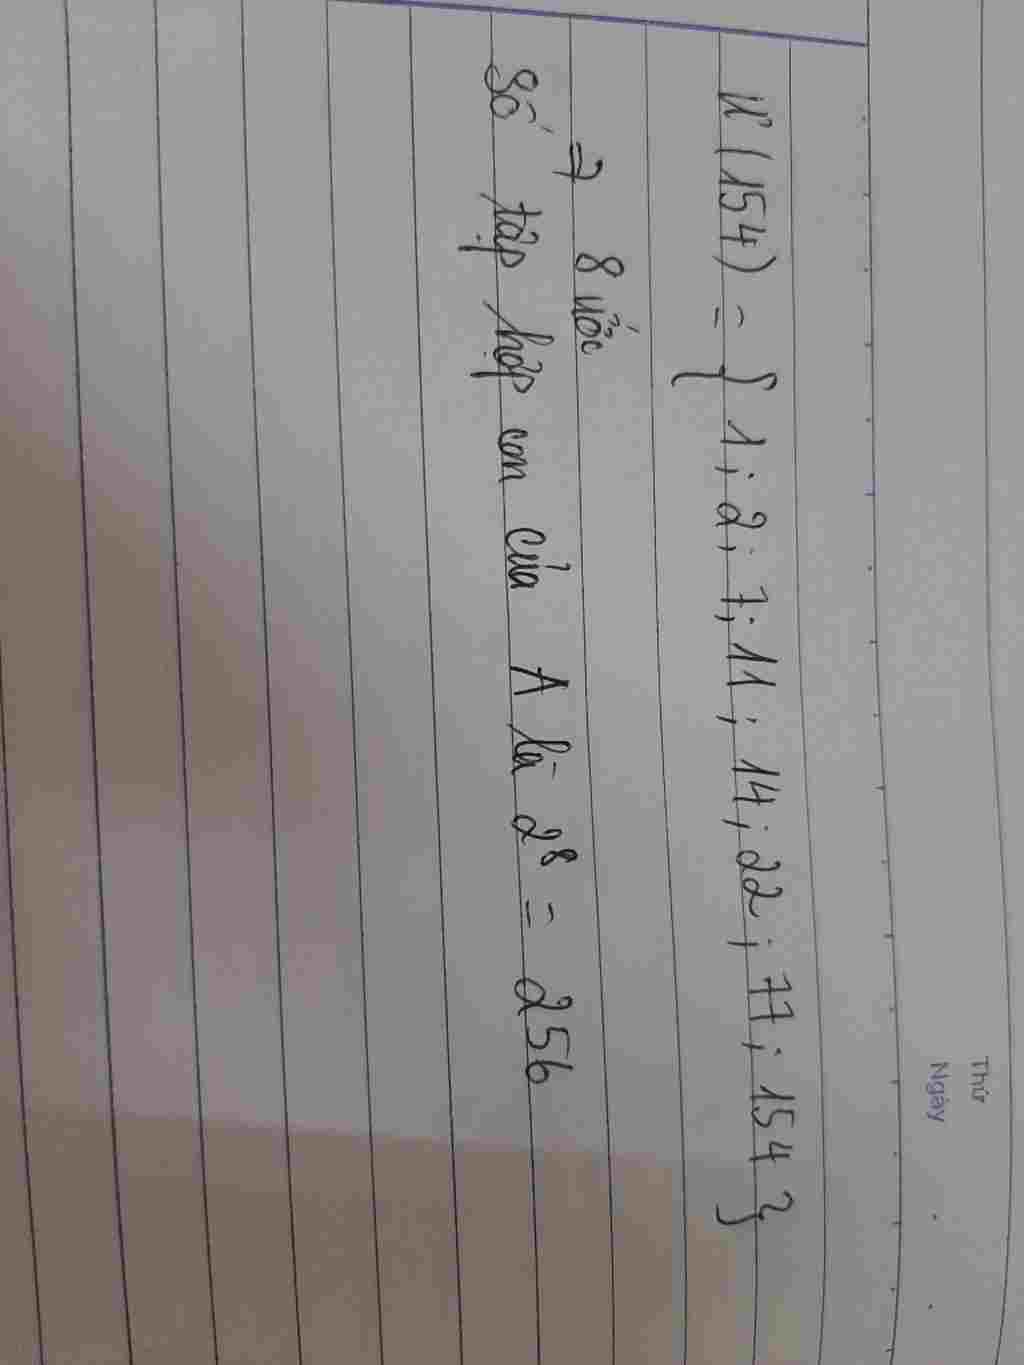 Thứ
Ngày
Ư(154) = { 1; 2; 7; 11; 14; 22; 77; 154 }
⇒ 8 ước
Số tập hợp con của A là 2⁸ = 256